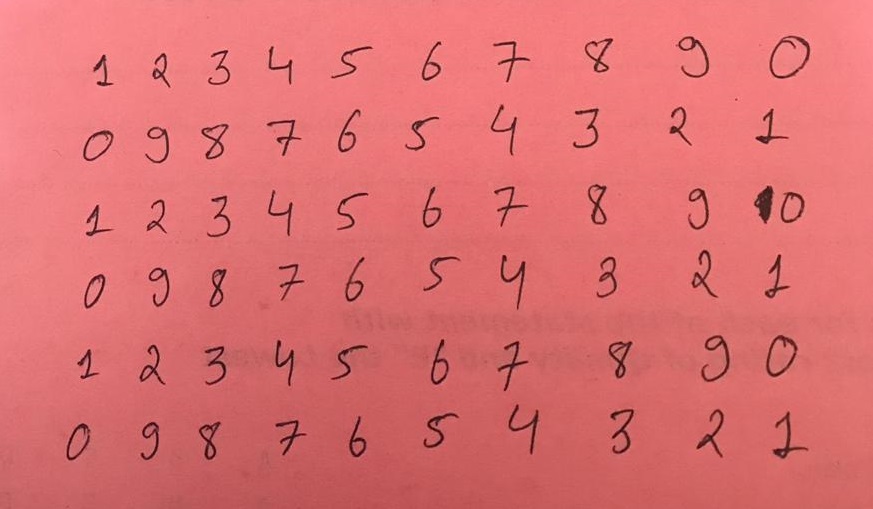 1 2 3 4 5 6 7 8 9 0
0 9 8 7 6 5 4 3 2 1
1 2 3 4 5 6 7 8 9 0
0 9 8 7 6 5 4 3 2 1
1 2 3 4 5 6 7 8 9 0
0 9 8 7 6 5 4 3 2 1